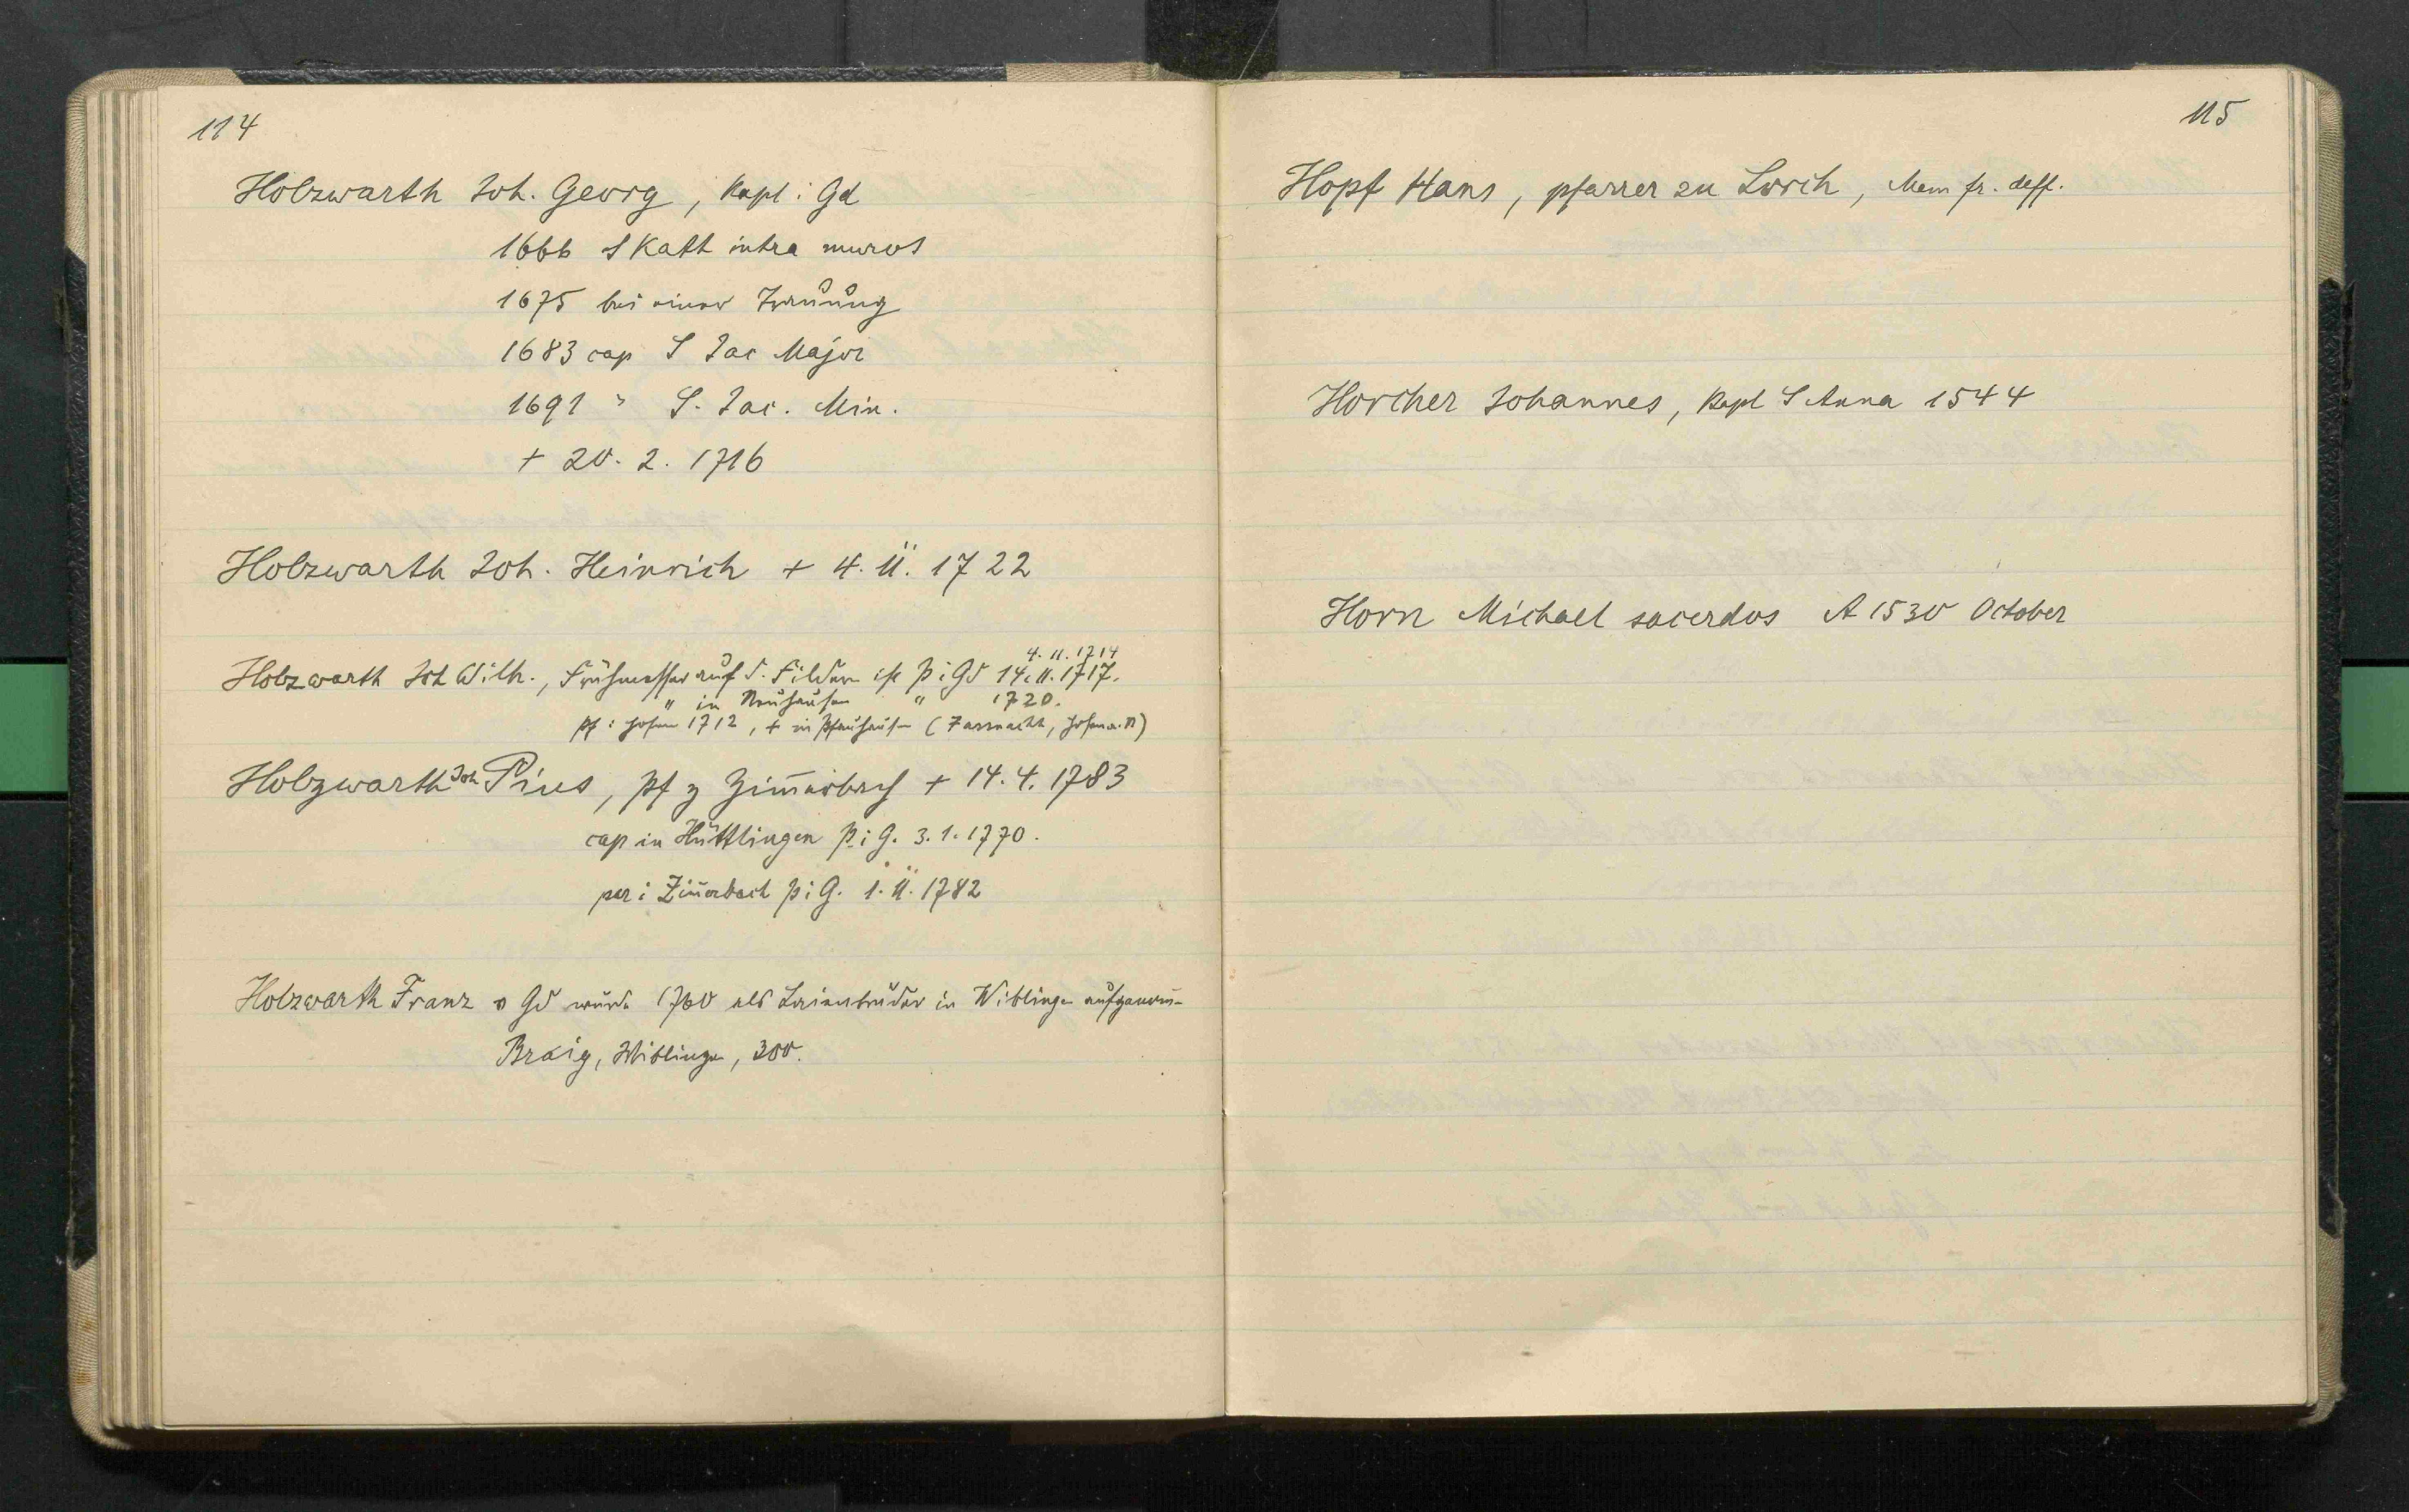 114
Holzwarth Joh. Georg, Kapl i Gd
1666 S Kath intra muros
1675 bei einer Trauung
1683 cap S Jac Major
1691 " S. Jac. Min.
+ 20. 2. 1716
Holzwarth Joh. Heinrich + 4. 11. 1722
4. 11. 1714
Holzwarth Joh Wilh., Frühmesser auf d. Fildern ist p i Gd 14. 11. 1717.
" in Neuhausen " 1720.
pf i Hofen 1712, + in Pfauhausen (Zarnacht, Hofen a. N)
Holzwarth Joh Pius, pf z Zim̅erbach + 14. 4. 1783
cap in Hüttlingen p i G. 3. 1. 1770.
par i Zim̅erbach p i G. 1. 11. 1782
Holzwarth Franz v Gd wurde 1760 als Laienbruder in Wiblingen aufgenom̅
Braig, Wiblingen, 300.
115
Hopf Hans, pfarrer zu Lorch, Mem fr. deff.
Horcher Johannes, Kapl S Anna 1544
Horn Michael sacerdos A 1530 October